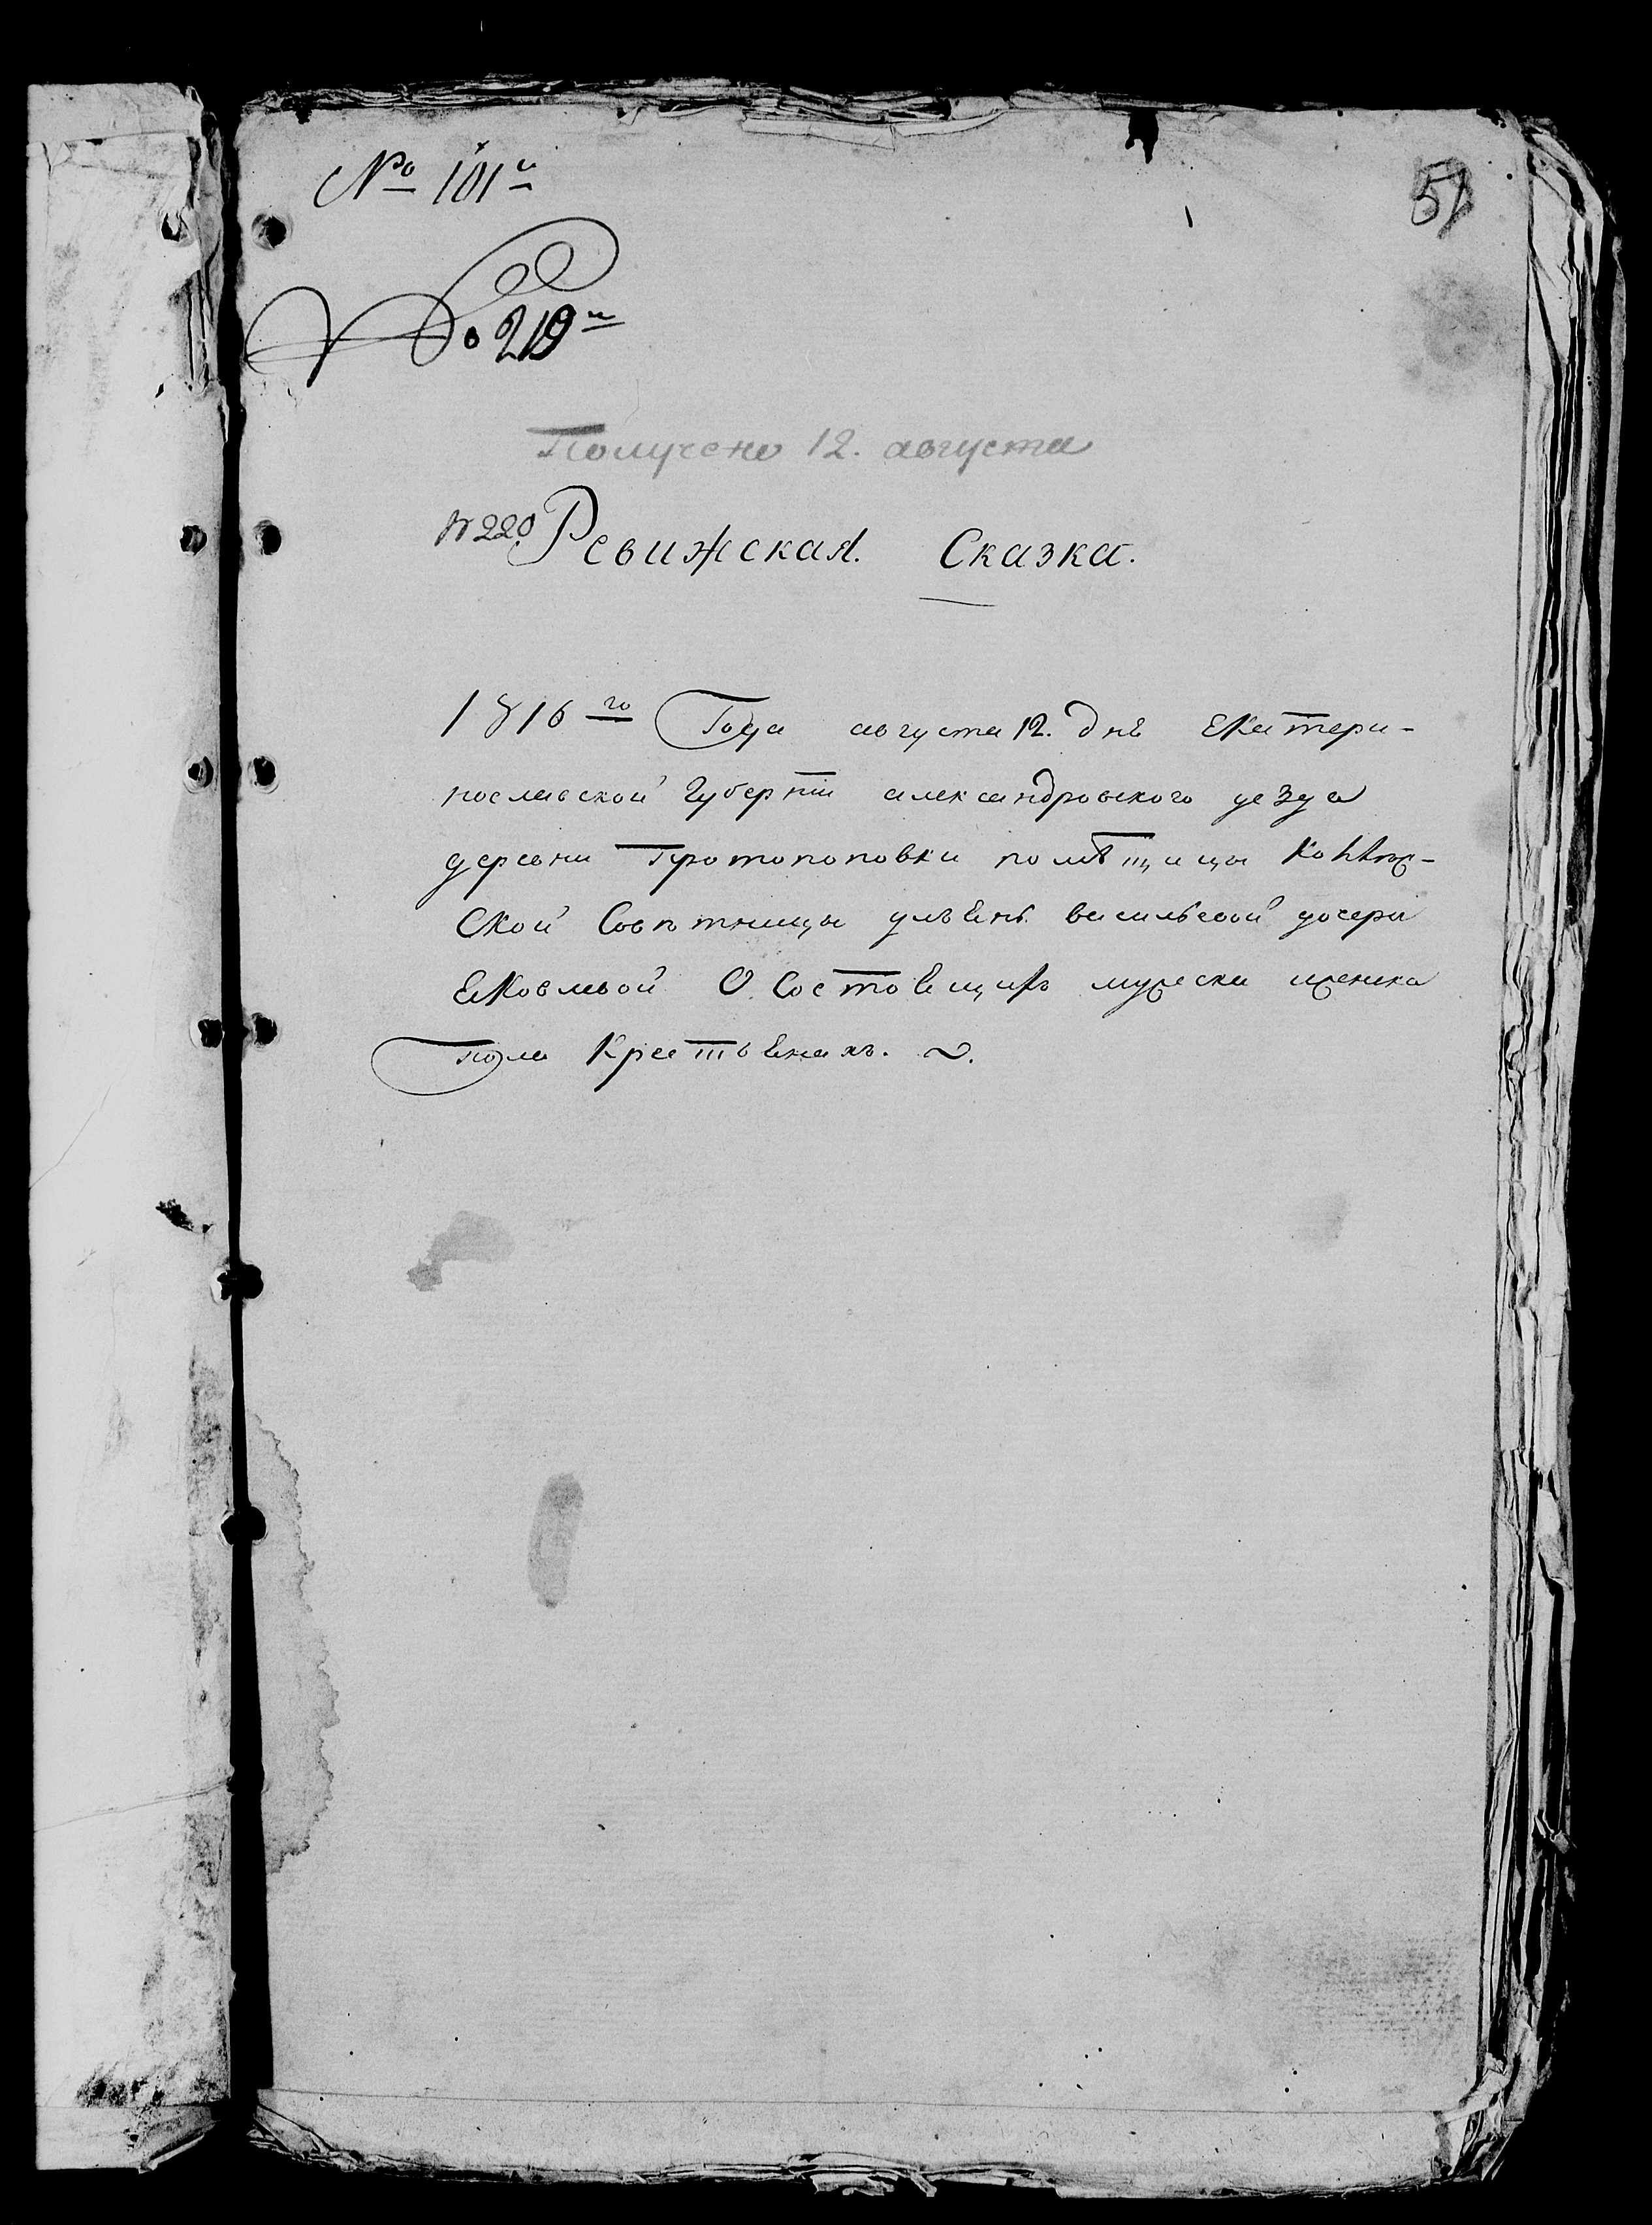 № 101й
57
№ 219й
Получено 12. августа
N 220. Ревижская. Сказка.
1816го Года августа 12. днѣ Екатери-
нославской губернiи александровского уезда
деревни Протопоповки помѣщицы
ской Совѣтницы ульѣны васильевой дочери
Яковлевой О Состоящихъ мужеска иженска
пола Крестьянахъ.